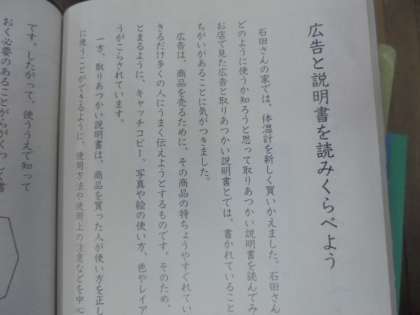 広告と説明書を読みくらべよう
石田さんの家では、体温計を新しく買いかえました。石田さん
どのように使うか知ろうと思って取りあつかい説明書を読んでみ
お店で見た広告と取りあつかい説明書とでは、書かれていること
ちがいがあることに気がつきました。
広告は、商品を売るために、その商品の特ちょうやすぐれてい
きるだけ多くの人にうまく伝えようとするものです。そのため、
とまるように、キャッチコピー、写真や絵の使い方、色やレイア
うがこらされています。
一方、取りあつかい説明書は、商品を買った人が使い方を正し
に使うことができるように、使用方法や使用上の注意などを中心
です。したがって、使ううえで知って
おく必要のあることがらが